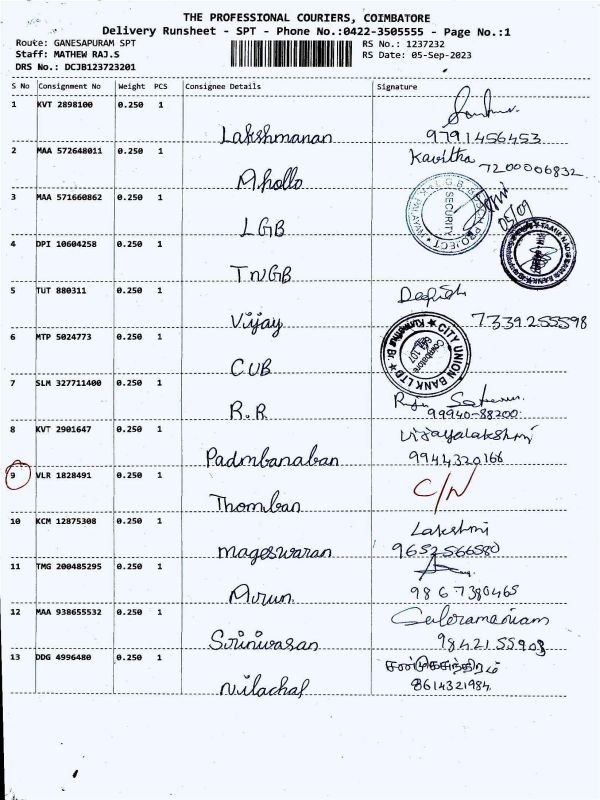 THE PROFESSIONAL COURIERS, COIMBATORE
Delivery Runsheet - SPT - Phone No.:0422-3505555 - Page No.:1
Route: GANESAPURAM SPT RS No.: 1237232
Staff: MATHEW RAJ.S RS Date: 05-Sep-2023
DRS No.: DCJB123723201
S No Consignment No Weight PCS Consignee Details Signature
1 KVT 2898100 0.250 1
Lakshmanan 9791456453
2 MAA 572648011 0.250 1 Kavitha 7200006832
Apollo
3 MAA 571660862 0.250 1 SECURITY 05/09
LGB
4 DPI 10604258 0.250 1
TNGB
5 TUT 880311 0.250 1
Vijay 7339255598
6 MTP 5024773 0.250 1 CITY UNION BANK LTD
CUB Coimbatore
7 SLM 327711400 0.250 1
R.R 99940-88200
8 KVT 2901647 0.250 1 Vijayalakshmi
Padmbanaban 9944320166
9 VLR 1828491 0.250 1 C/N
Thomban
10 KCM 12875308 0.250 1 Lakshmi
mageswaran 9652566580
11 TMG 200485295 0.250 1
Arun. 9867380465
12 MAA 938655532 0.250 1
Srinivasan 9842155908
13 DDG 4996480 0.250 1
Nilachal 8614321984